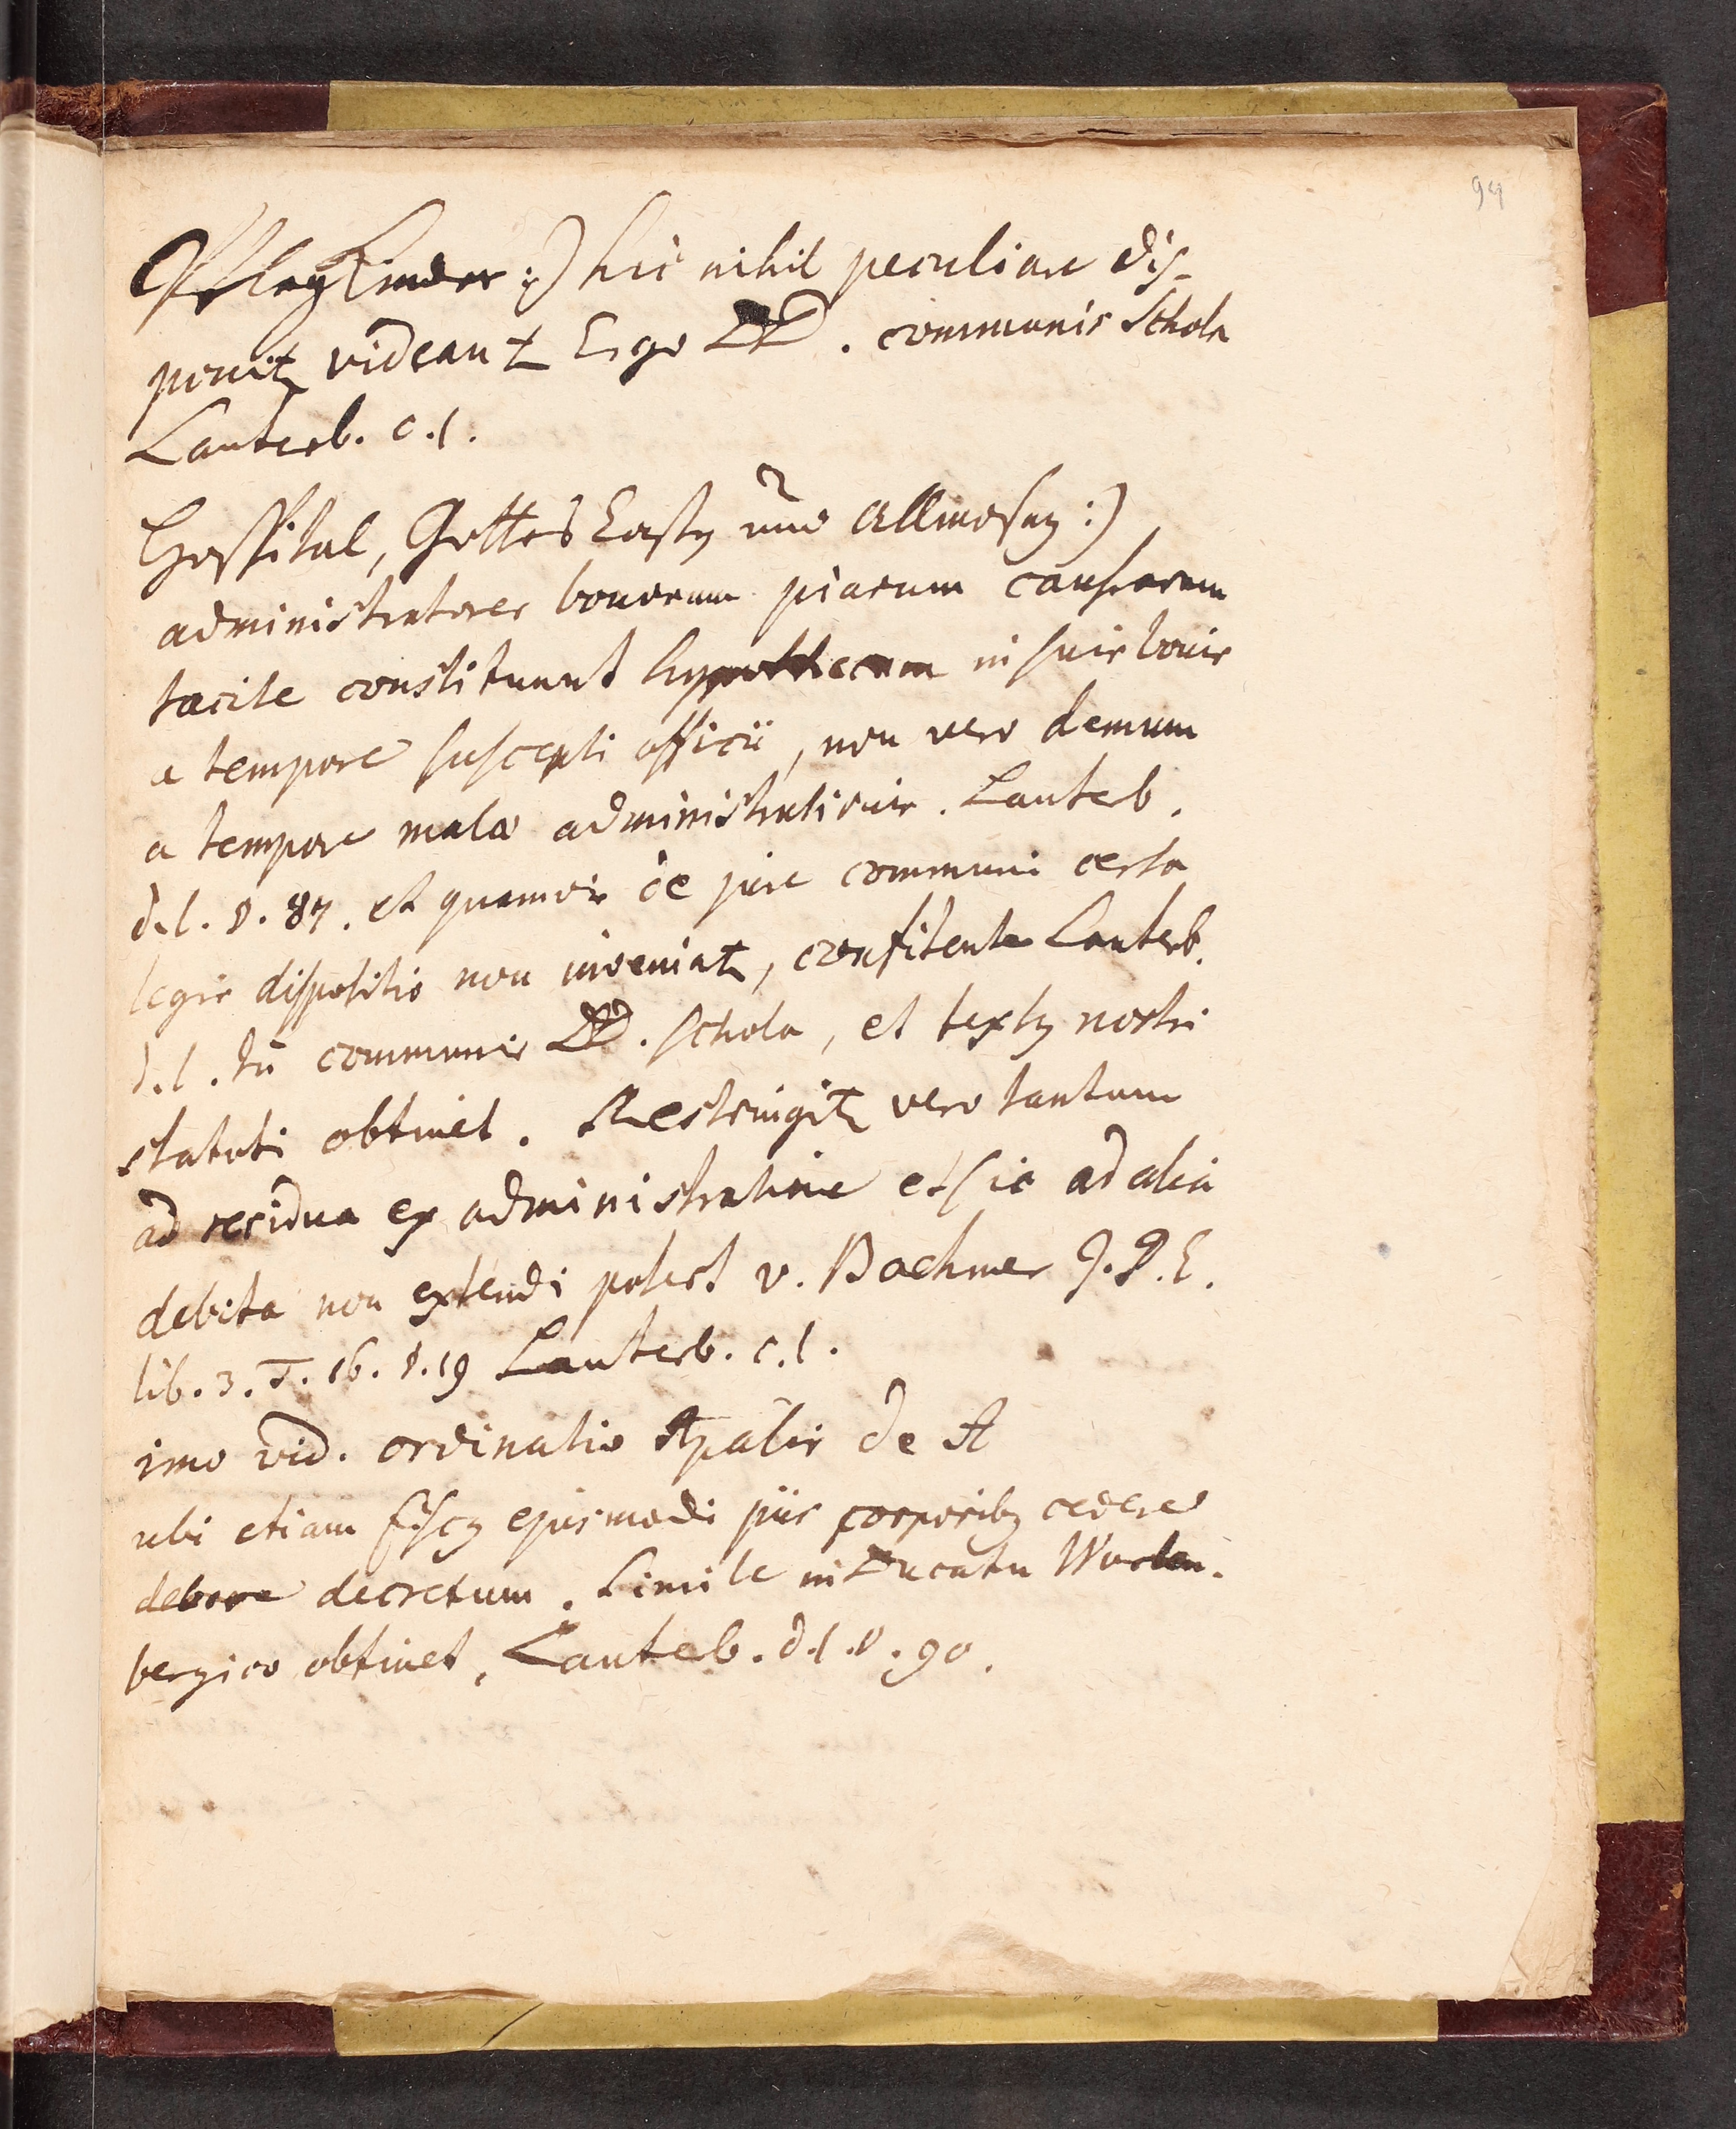 94
Pflegkinder :) hic nihil peculiare dis-
ponitr videant Ergo DD. communis Schola
Lauterb. c. l.
Hospital, Gottes Kasten und Allmosen :)
administratores bonorum piarum causarum
tacite constituunt hypothecam in suis bonis
a tempore suscepti officii, non vero demum
a tempore malae administrationis. Lauterb.
d. l. §. 87. et quamvis de jure communi certa
legis dispositio non inveniatr, confitente Lauterb.
d. l. tn communis DD. schola, et textus nostri
statuti obtinet. Restringitr vero tantum
ad residua ex administratione et sic ad alia
debita non extendi potest v. Boehmer J. P. E.
lib. 3. T. 16. §. 19 Lauterb. c. l.
imo vid. ordinatio de A
ubi etiam fiscus ejusmodi piis corporibus cedere
debere decretum. Simile in Ducatu Wurten-
bergico obtinet, Lauterb. d. l. §. 90.